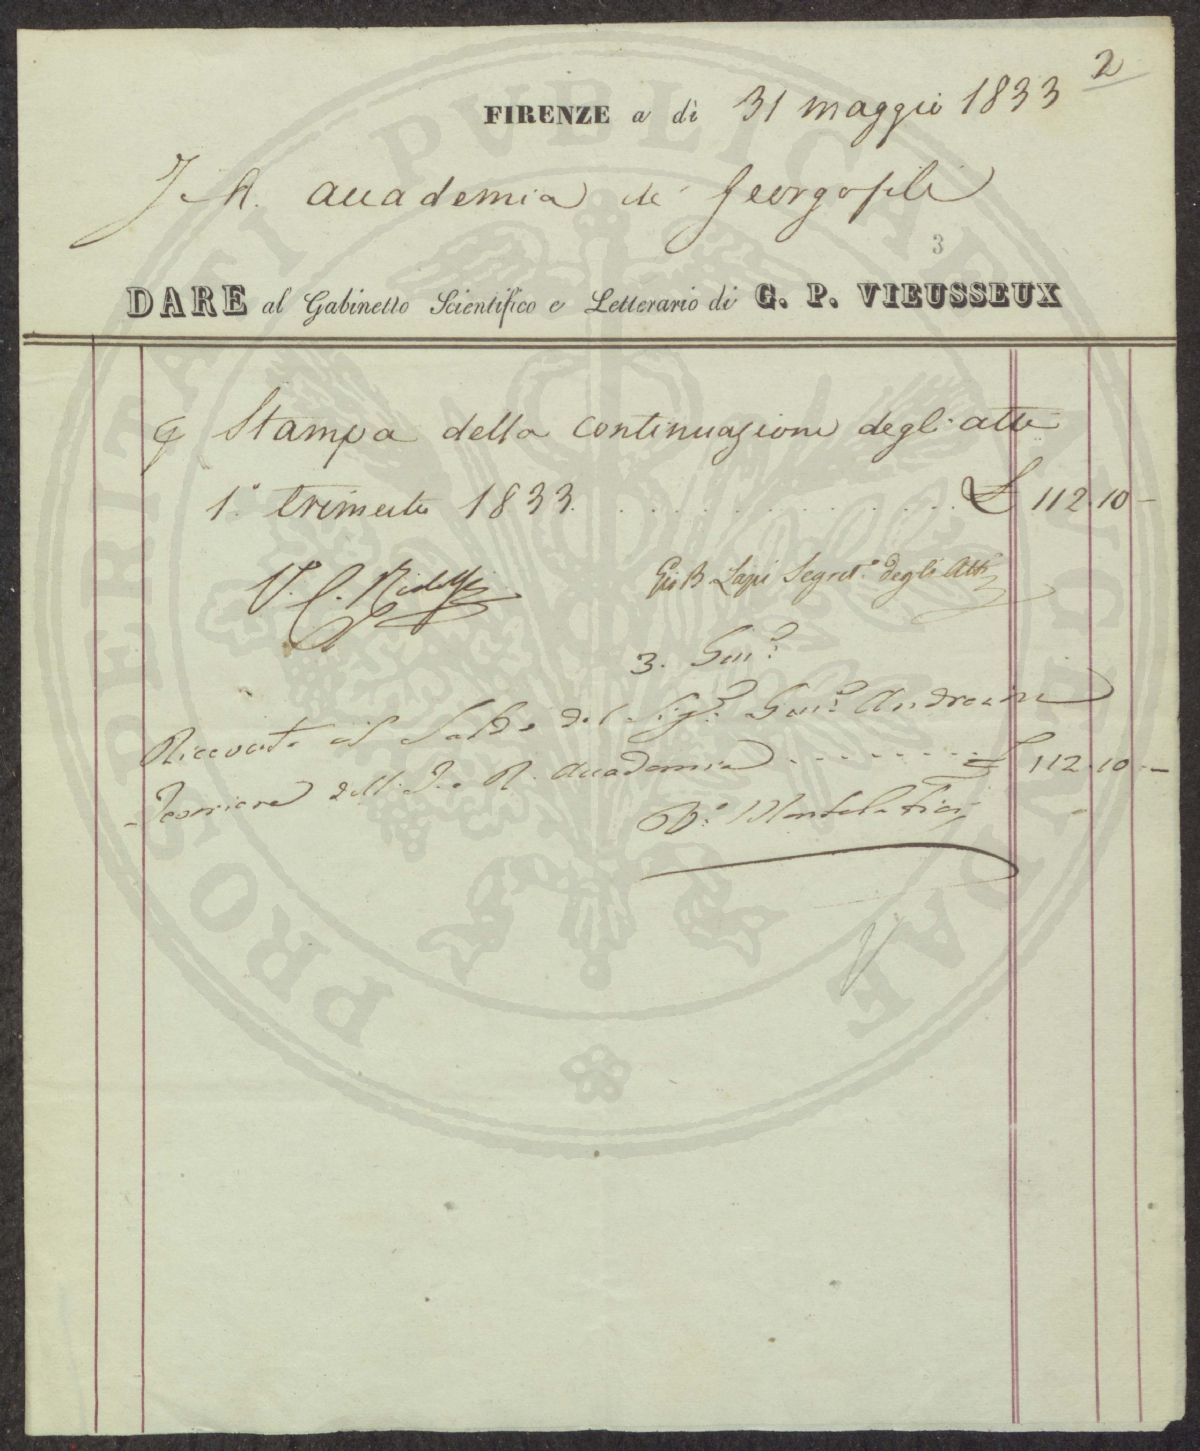 2
FIRENZE a dì 31 maggio 1833
I. R. Accademia de' Georgofili
3
DARE al Gabinetto Scientifico e Letterario di G. P. VIEUSSEUX
Stampa della continuazione degli atti
1.° trimestre 1833. . . . . . . . . . . . . . £ 112.10 —
V.° C. Ridolfi
Gio B Lapi Segret.° degli Atti
3.
Ricevuto il Saldo del Sig.r Andreini
Tesoriere dell' I. e R. Accademia . . . . . . . . £ 112.10 —
PROSPERITATI PUBLICAE AUGENDAE